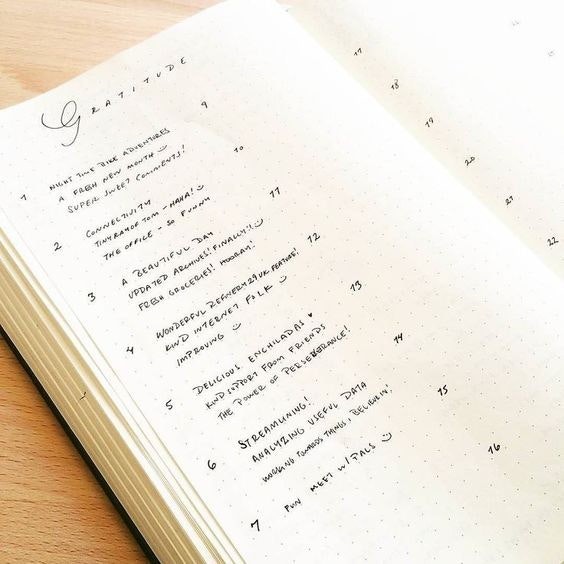 GRATITUDE
1 NIGHT TIME BIKE ADVENTURES
A FRESH NEW MONTH
SUPER SWEET COMMENTS!
2 CONNECTIVITY
TINY RAY OF TOM - HAHA!
THE OFFICE - SO FUNNY
3 A BEAUTIFUL DAY
UPDATED ARCHIVES! FINALLY!
FRESH GROCERIES! HOORAY!
4 WONDERFUL REFINERY29 UK FEATURE!
KIND INTERNET FOLK
IMPROVING
5 DELICIOUS ENCHILADAS
KIND SUPPORT FROM FRIENDS
THE POWER OF PERSEVERANCE!
6 STREAMLINING!
ANALYZING USEFUL DATA
WORKING TOWARDS THINGS I BELIEVE IN!
7 FUN MEET W/ PALS
9
10
11
12
13
14
15
16
17
18
19
20
21
22